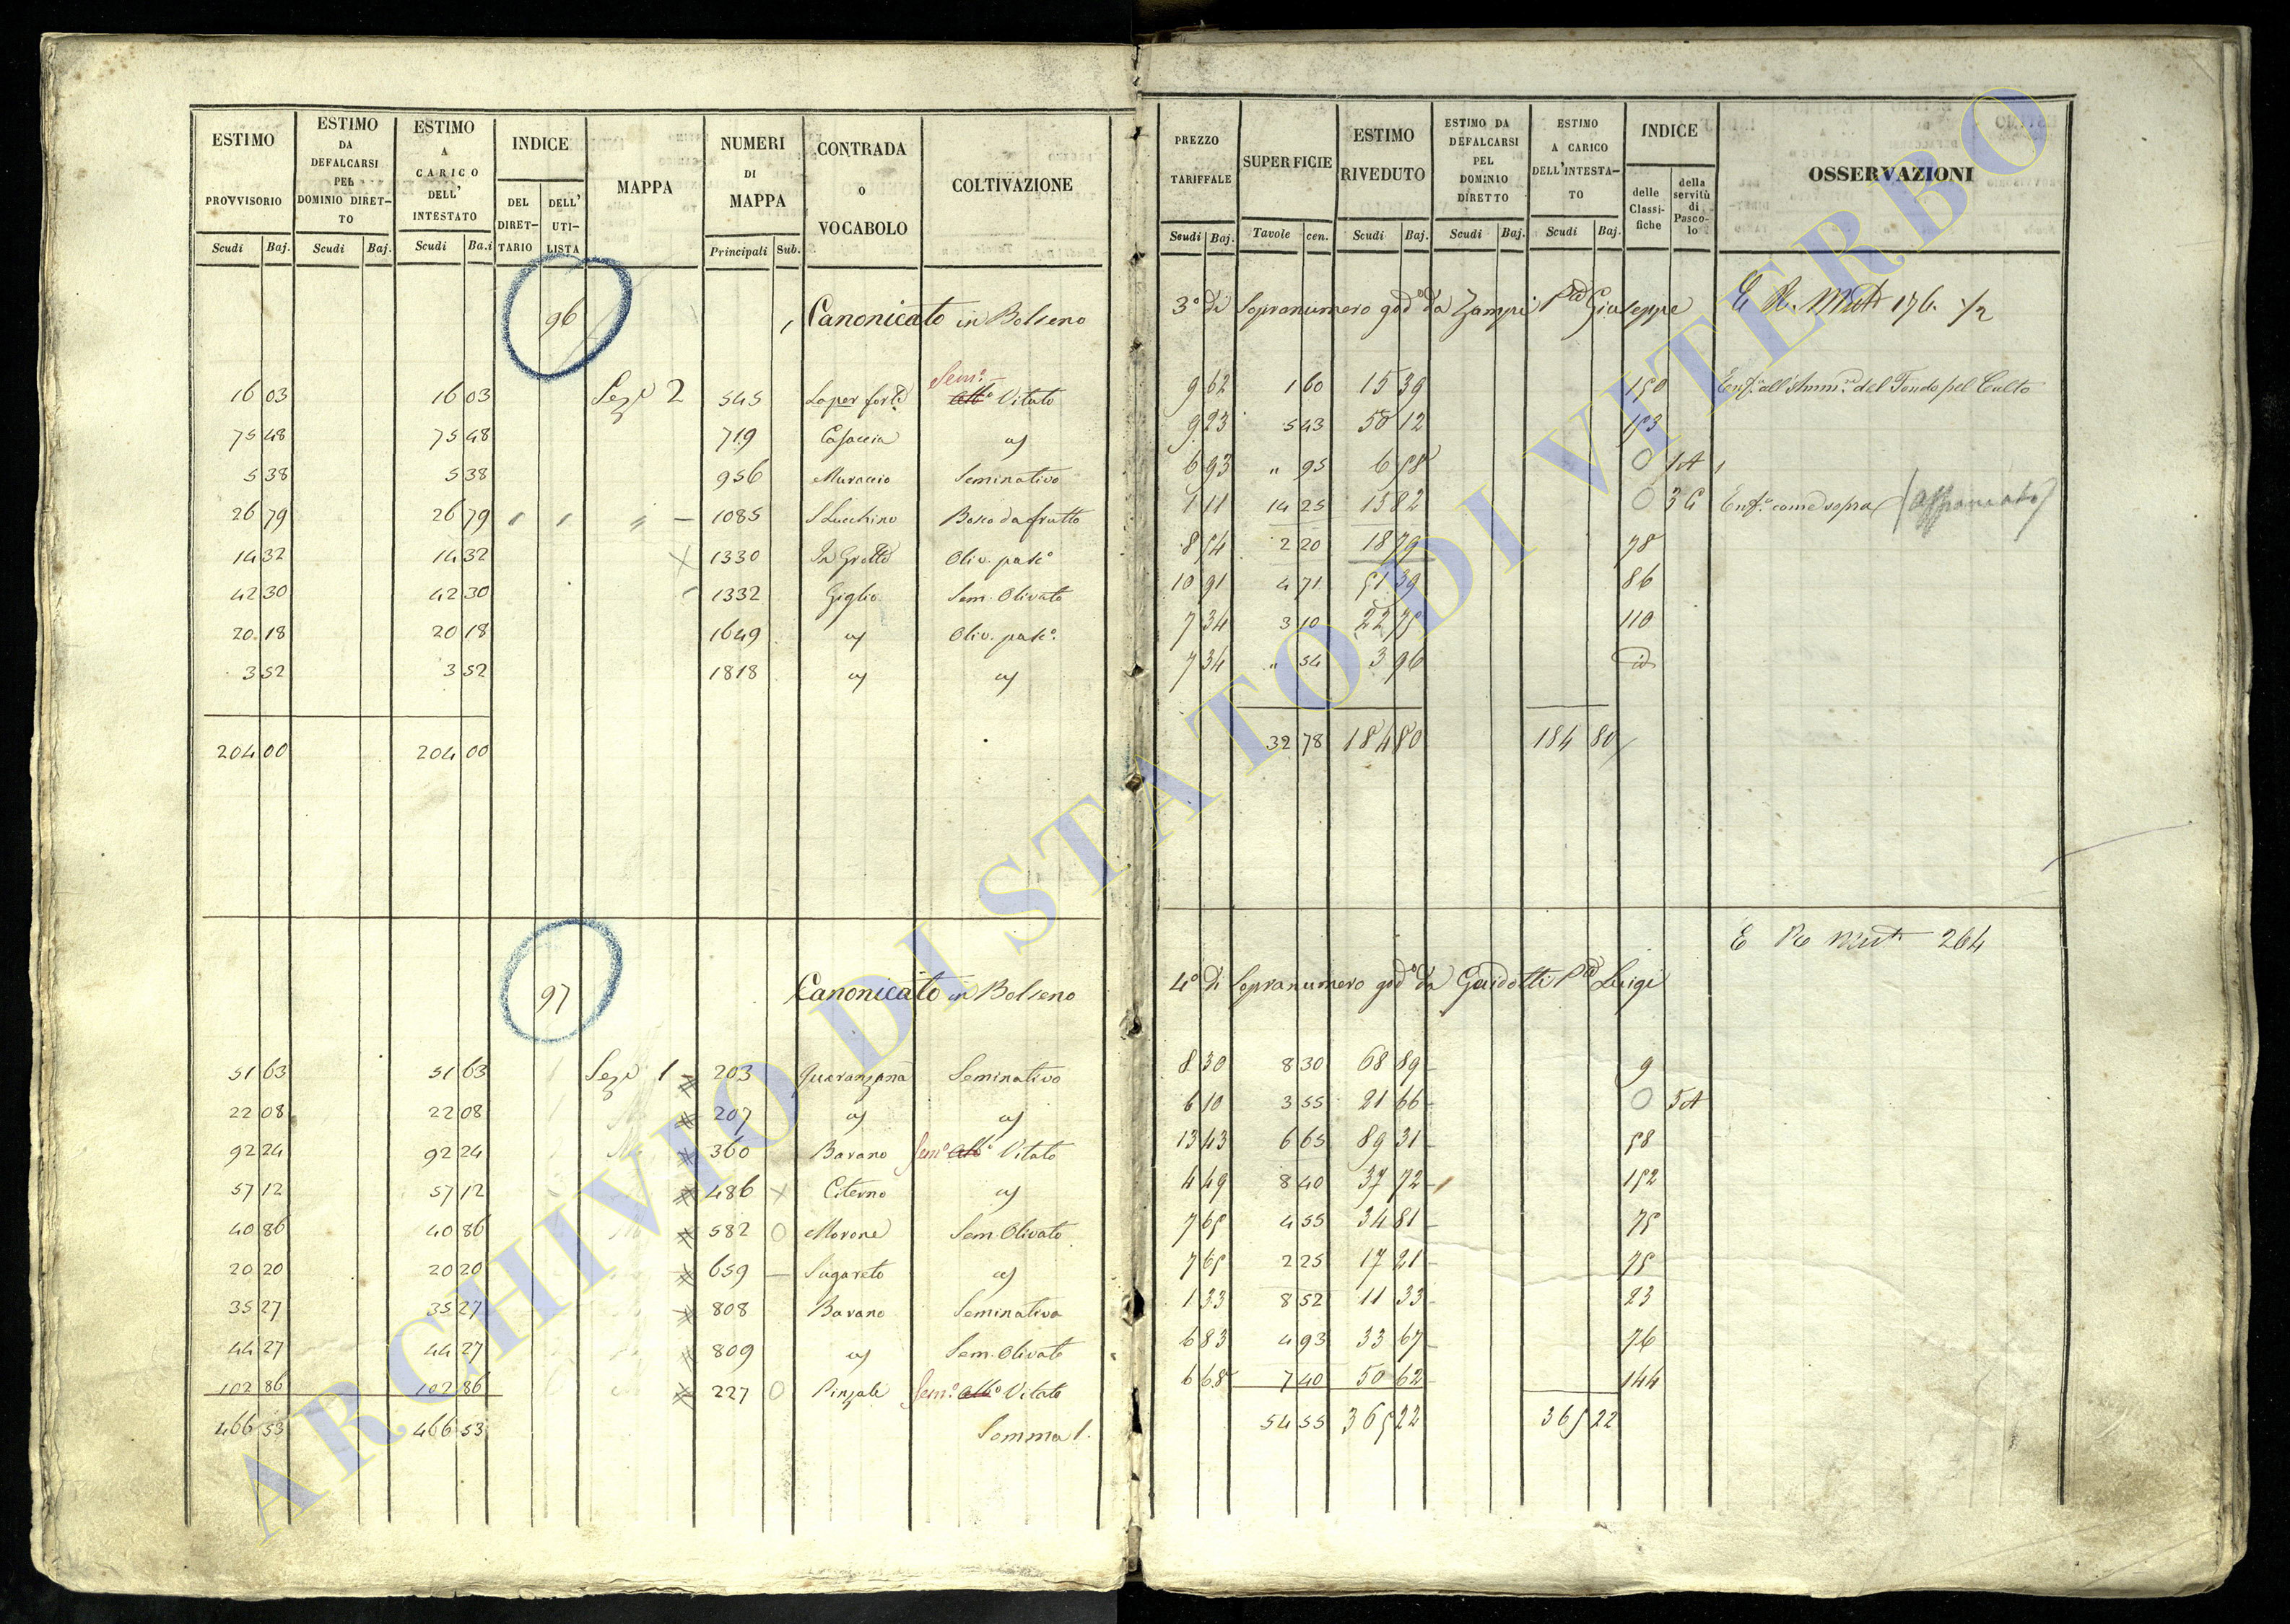 ESTIMO PROVVISORIO | ESTIMO DA DEFALCARSI PEL DOMINIO DIRETTO | ESTIMO A CARICO DELL' INTESTATO | INDICE | MAPPA | NUMERI DI MAPPA | CONTRADA O VOCABOLO | COLTIVAZIONE | PREZZO TARIFFALE | SUPERFICIE | ESTIMO RIVEDUTO | ESTIMO DA DEFALCARSI PEL DOMINIO DIRETTO | ESTIMO A CARICO DELL'INTESTA-TO | INDICE | OSSERVAZIONI
DEL DIRET-TARIO | DELL' UTI-LISTA | delle Classi-fiche | della servitù di Pasco-lo
Scudi | Baj. | Scudi | Baj. | Scudi | Ba.i | Principali | Sub. | Scudi | Baj. | Tavole | cen. | Scudi | Baj. | Scudi | Baj. | Scudi | Baj.
96 | Canonicato in Bolseno | 3° di Sopranumero god° da Zampi Giuseppe | 176. 1/2
16 03 | 16 03 | Sez° 2 | 545 | Sem° Vitato | 9 62 | 1 60 | 15 39 | 150 | del Fondo pel Culto
75 48 | 75 48 | 719 | Casaccia | 9 23 | 5 43 | 50 12 | 153
5 38 | 5 38 | 956 | Muraccio | Seminativo | 6 93 | " 95 | 6 58 | 0 | 1A
26 79 | 26 79 | 1085 | S Lucchino | Bosco da frutto | 1 11 | 14 25 | 15 82 | 0 | 3 | come sopra
14 32 | 14 32 | 1330 | Oliv. pas° | 8 54 | 2 20 | 18 79 | 78
42 30 | 42 30 | 1332 | Giglio | Sem. Olivato | 10 91 | 4 71 | 51 39 | 86
20 18 | 20 18 | 1649 | Oliv. pas° | 7 34 | 3 10 | 22 75 | 110
3 52 | 3 52 | 1818 | 7 34 | " 54 | 3 96 | id
204 00 | 204 00 | 32 78 | 184 80 | 184 80
264
97 | Canonicato in Bolseno | 4° di Sopranumero god° da Guidotti Luigi
51 63 | 51 63 | Sez° 1 | 203 | Quaranzana | Seminativo | 8 30 | 8 30 | 68 89 | 9
22 08 | 22 08 | 207 | 6 10 | 3 55 | 21 66 | 0 | 5A
92 24 | 92 24 | 360 | Barano | Sem° Vitato | 13 43 | 6 65 | 89 31 | 58
57 12 | 57 12 | 486 | Citerno | 4 49 | 8 40 | 37 72 | 152
40 86 | 40 86 | 582 | 0 | Morone | Sem. Olivato | 7 65 | 4 55 | 34 81 | 75
20 20 | 20 20 | 659 | Sugareto | 7 65 | 2 25 | 17 21 | 75
35 27 | 35 27 | 808 | Barano | Seminativo | 1 33 | 8 52 | 11 33 | 23
44 27 | 44 27 | 809 | Sem. Olivato | 6 83 | 4 93 | 33 67 | 76
102 86 | 102 86 | 227 | 0 | Sem° Vitato | 6 68 | 7 40 | 50 62 | 144
466 53 | 466 53 | Somma | 54 55 | 365 22 | 365 22
ARCHIVIO DI STATO DI VITERBO